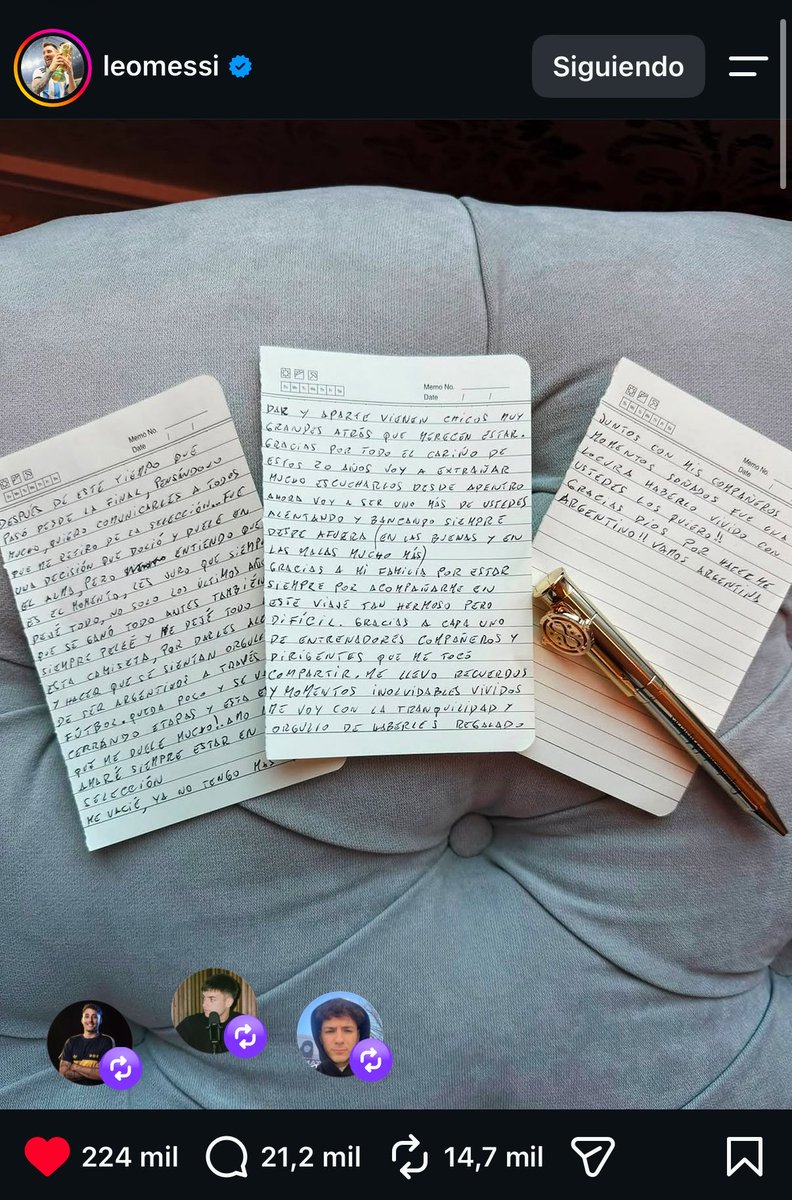 leomessi
Siguiendo
Memo No.
Date / /
DESPUÉS DE ESTE TIEMPO QUE
PASÓ DESDE LA FINAL, PENSÁNDOLO
MUCHO, QUIERO COMUNICARLES A TODOS
QUE ME RETIRO DE LA SELECCIÓN. FUE
UNA DECISIÓN QUE DOLIÓ Y DUELE EN
EL ALMA, PERO ENTIENDO QUE
ES EL MOMENTO. LES JURO QUE SIEMPRE
DEJÉ TODO, NO SOLO LOS ÚLTIMOS AÑOS
QUE SE GANÓ TODO ANTES TAMBIÉN
SIEMPRE PELEÉ Y ME DEJÉ TODO
ESTA CAMISETA, POR DARLES
Y HACER QUE SE SIENTAN
DE SER ARGENTINOS A TRAVÉS
FÚTBOL. QUEDA POCO Y SE
CERRANDO ETAPAS Y ESTA
QUE ME DUELE MUCHO! AMO
AMARÉ SIEMPRE ESTAR EN
SELECCIÓN
ME VACIÉ, YA NO TENGO MAS
Memo No.
Date / /
DAR Y APARTE VIENEN CHICOS MUY
GRANDES ATRÁS QUE MERECEN ESTAR.
GRACIAS POR TODO EL CARIÑO DE
ESTOS 20 AÑOS VOY A EXTRAÑAR
MUCHO ESCUCHARLOS DESDE ADENTRO
AHORA VOY A SER UNO MÁS DE USTEDES
ALENTANDO Y BANCANDO SIEMPRE
DESDE AFUERA (EN LAS BUENAS Y EN
LAS MALAS MUCHO MÁS)
GRACIAS A MI FAMILIA POR ESTAR
SIEMPRE POR ACOMPAÑARME EN
ESTE VIAJE TAN HERMOSO PERO
DIFÍCIL. GRACIAS A CADA UNO
DE ENTRENADORES COMPAÑEROS Y
DIRIGENTES QUE ME TOCÓ
COMPARTIR. ME LLEVO RECUERDOS
Y MOMENTOS INOLVIDABLES VIVIDOS
ME VOY CON LA TRANQUILIDAD Y
ORGULLO DE HABERLES REGALADO
Memo No.
Date / /
JUNTOS CON MIS COMPAÑEROS
MOMENTOS SOÑADOS FUE UNA
LOCURA HABERLO VIVIDO CON
USTEDES LOS QUIERO!!
GRACIAS DIOS POR HACERME
ARGENTINO!! VAMOS ARGENTINA
224 mil
21,2 mil
14,7 mil